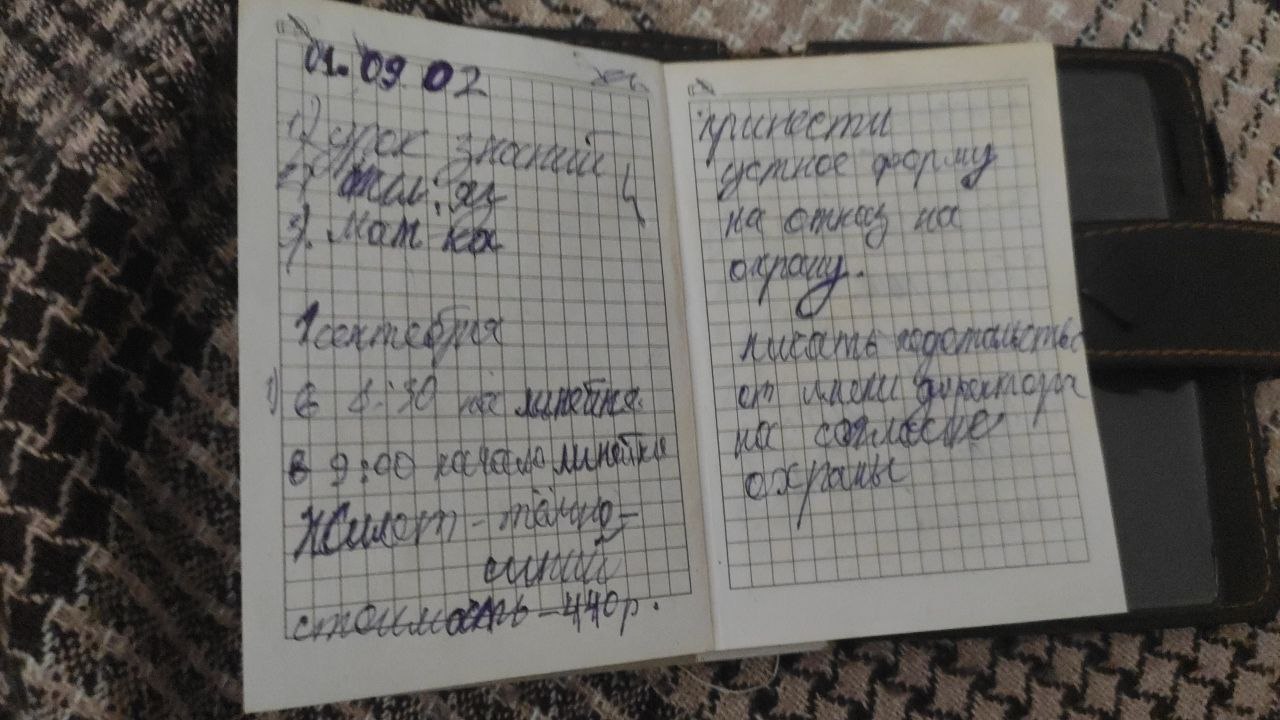 01.09.02
1) урок знаний
2)
3). мат-ка
1 сентября
1) в 8:30 на линейке
в 9:00 начало линейки
Жилет - тёмно-
синий
стоимость - 440р.
принести
устное форму
на отказ на
охрану.
писать
от имени директора
на согласие
охраны